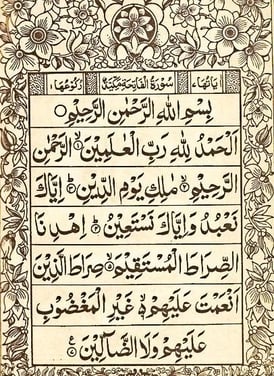 اٰیَاتُهَا ٧ سُوْرَةُ الْفَاتِحَةِ مَكِّیَّةٌ رُكُوْعُهَا ١
بِسْمِ اللّٰهِ الرَّحْمٰنِ الرَّحِیْمِ
اَلْحَمْدُ لِلّٰهِ رَبِّ الْعٰلَمِیْنَ ۙ الرَّحْمٰنِ
الرَّحِیْمِ ۙ مٰلِكِ یَوْمِ الدِّیْنِ ؕ اِیَّاكَ
نَعْبُدُ وَ اِیَّاكَ نَسْتَعِیْنُ ؕ اِهْدِنَا
الصِّرَاطَ الْمُسْتَقِیْمَ ۙ صِرَاطَ الَّذِیْنَ
اَنْعَمْتَ عَلَیْهِمْ ۙ غَیْرِ الْمَغْضُوْبِ
عَلَیْهِمْ وَلَا الضَّآلِّیْنَ